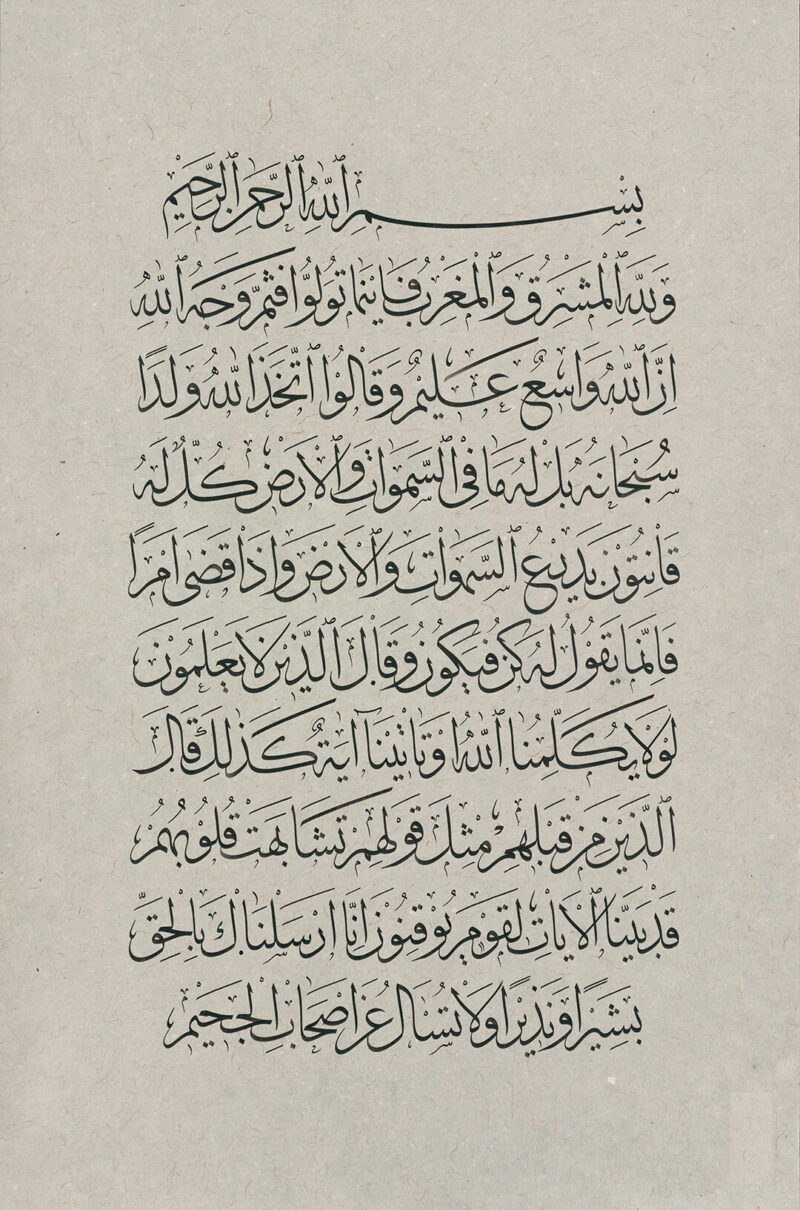 بِسْمِ ٱللّٰهِ ٱلرَّحْمٰنِ ٱلرَّحِيمِ
وَلِلّٰهِ ٱلْمَشْرِقُ وَٱلْمَغْرِبُ فَاَيْنَمَا تُوَلُّوا فَثَمَّ وَجْهُ ٱللّٰهِ
اِنَّ ٱللّٰهَ وَاسِعٌ عَلِيمٌ وَقَالُوا ٱتَّخَذَ ٱللّٰهُ وَلَدًا
سُبْحَانَهُ بَلْ لَهُ مَا فِى ٱلسَّمٰوَاتِ وَٱلْاَرْضِ كُلٌّ لَهُ
قَانِتُوْنَ بَدِيْعُ ٱلسَّمٰوَاتِ وَٱلْاَرْضِ وَاِذَا قَضٰى اَمْرًا
فَاِنَّمَا يَقُوْلُ لَهُ كُنْ فَيَكُوْنُ وَقَالَ ٱلَّذِيْنَ لَا يَعْلَمُوْنَ
لَوْلَا يُكَلِّمُنَا ٱللّٰهُ اَوْ تَاْتِيْنَآ اٰيَةٌ كَذٰلِكَ قَالَ
ٱلَّذِيْنَ مِنْ قَبْلِهِمْ مِثْلَ قَوْلِهِمْ تَشَابَهَتْ قُلُوْبُهُمْ
قَدْ بَيَّنَّا ٱلْاٰيَاتِ لِقَوْمٍ يُوْقِنُوْنَ اِنَّا اَرْسَلْنَاكَ بِالْحَقِّ
بَشِيْرًا وَنَذِيْرًا وَلَا تُسْـَٔالُ عَنْ اَصْحَابِ ٱلْجَحِيْمِ